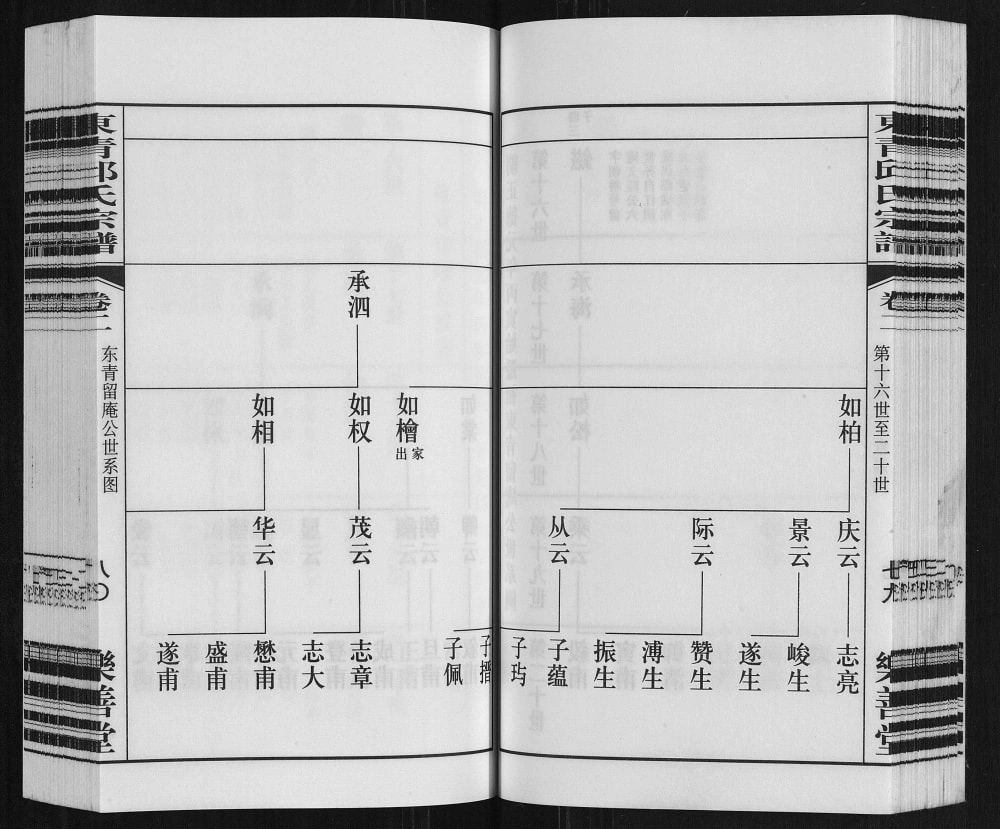 東青邱氏宗譜
卷二
第十六世至二十世
七九
樂善堂
如柏
庆云
景云
际云
从云
志亮
峻生
遂生
赞生
溥生
振生
子蕴
子玙
承泗
如檜
出家
如权
如相
茂云
华云
子搢
子佩
志章
志大
懋甫
盛甫
遂甫
東青邱氏宗譜
卷二
东青留庵公世系图
八〇
樂善堂